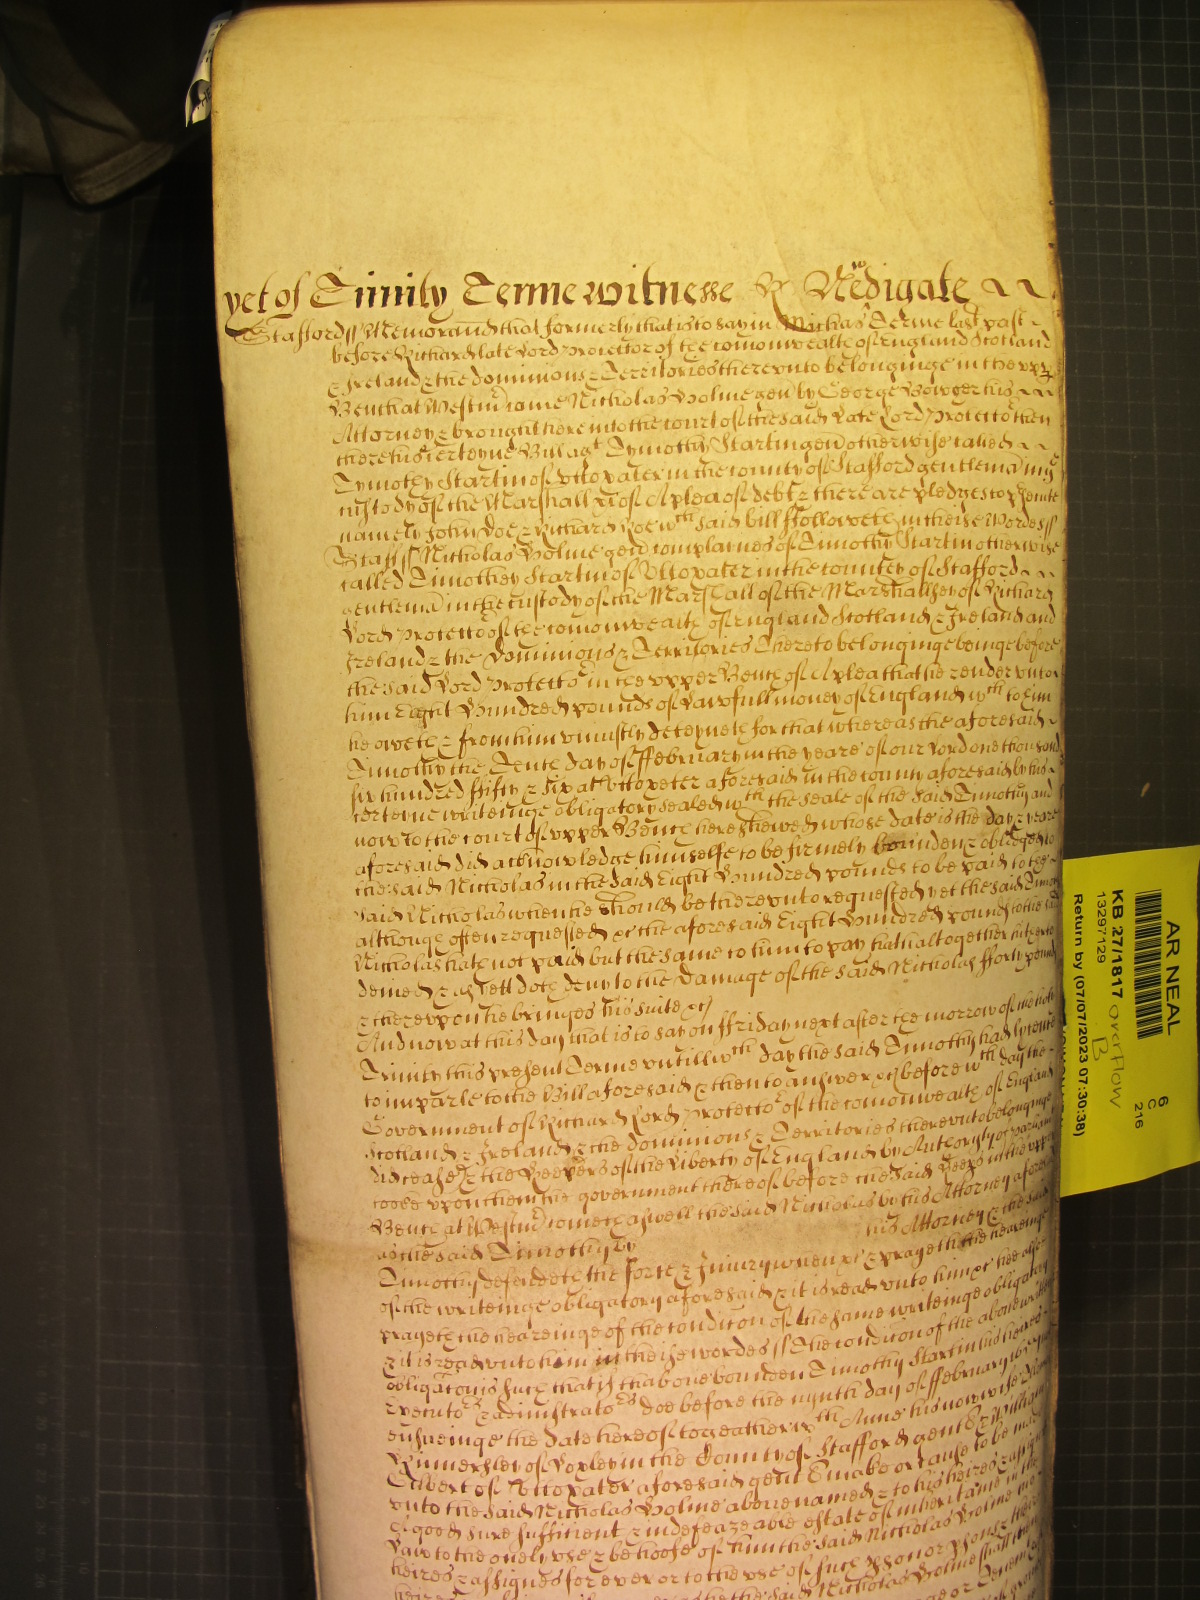 yet of Trinity Terme witnesse R Newdigate
Stafford ss Memorand that formerly that is to say in Michas Terme last past
before Richard late Lord Protector of the comonwealth of England Scotland
& Ireland & the dominions & Territories thereunto belonginge in the upper
Bench at Westmr came Nicholas Holme gen by George Bowyer his
Attorney & brought here into the court of the said Late Lord Protector then
there his certeyne Bill agt Tymothy Startin gen otherwise called
Tymothy Startin of Uttoxater in the county of Stafford gentleman in ye
custody of the Marshall &c of A plea of debt & there are pledges to prosecute
namely John Doe & Richard Roe wch said bill followeth in theise Wordes ss
Staff ss Nicholas Holme gen complaines of Timothy Startin otherwise
called Timothey Startin of Uttoxater in the countey of Stafford
gentleman in the custody of the Marshall of the Marshallsey of Richard
Lord Protector of the comonwealth of England Scotland & Ireland and
Ireland & the Dominions & Territories thereto belonginge beinge before
the said Lord Protector in the upper Bench of A plea that he render unto
him Eight Hundred pounds of Lawfull money of England wch to him
he oweth & from him uniustly deteyneth for that whereas the aforesaid
Timothy the Tenth day of February in the yeare of our Lord one thousand
six hundred fifty & six at Uttoxeter aforesaid in the county aforesaid by his
certeyne writeinge obligatory sealed wth the seale of the said Timothy and
now to the court of upper Bench here shewed whose date is the day & yeare
aforesaid did acknowledge himselfe to be firmely bounden & obliged to
the said Nicholas in the said Eight Hundred pounds to be paid to the
said Nicholas when he should be thereunto requested yet the said Timothy
although often requested &c the aforesaid Eight Hundred pounds to the said
Nicholas hath not paid but the same to him to pay hath altogether hitherto
denied & as yett doth deny to the Damage of the said Nicholas forty pounds
& thereupon he bringes his suite &c
And now at this day that is to say on Friday next after the morrow of the holy
Trinity this present Terme untill wch day the said Timothy had lycence
to imparle to the Bill aforesaid & then to answer &c before wch day the
Government of Richard Lord Protector of the comonwealth of England
Scotland & Ireland & the dominions & Territories thereunto belonginge
did cease & the Keepers of the Liberty of England by Authority of Parliamt
tooke upon them the government thereof before the said Keeps in the upper
Bench at Westmr cometh aswell the said Nicholas by his Attorney aforesaid
as the said Timothy by his Attorney & the said
Timothy defendeth the force & Iniury when &c & prayeth the heareinge
of the writeinge obligatory aforesaid & it is read unto him &c hee also
prayeth the heareinge of the condicon of the same writeinge obligatory
& it is read unto him in theise wordes ss The condicon of the above written
obligacon is such that if thabove bounden Timothy Startin his heires
Executors & administrators doe before the nynth day of February next
ensueinge the date hereof togeather wth Anne his now wife
Kinnersley of Loxley in the County of Stafford gent & William
Cubert of Uttoxater aforesaid gent make or cause to be made
unto the said Nicholas Holme above named & to his heires & assignes
A good sure sufficient & indefeazeable estate of inheritance in the
Law to the onely use & behoofe of him the said Nicholas Holme
heires & assignes for ever or to the use of such pson or psons & their
heires the said Nicholas Holme shall
AR NEAL
KB 27/1817 overflow
13297129 B
Return by (07/07/2023 07:30:38)
6
C
216